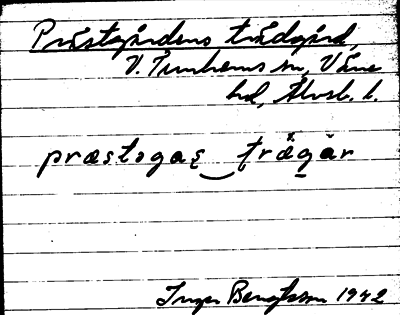 Prästgårdens trädgård,
V. Tunhems sn, Väne
hd, Älvsb. l.
præstogaʂ ‿ trǽgår
Inger Bengtsson 1942